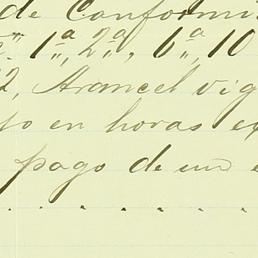 de Conformi
1ª, 2ª, 6ª, 10
2, Arancel vig
to en horas ex
pago de un e